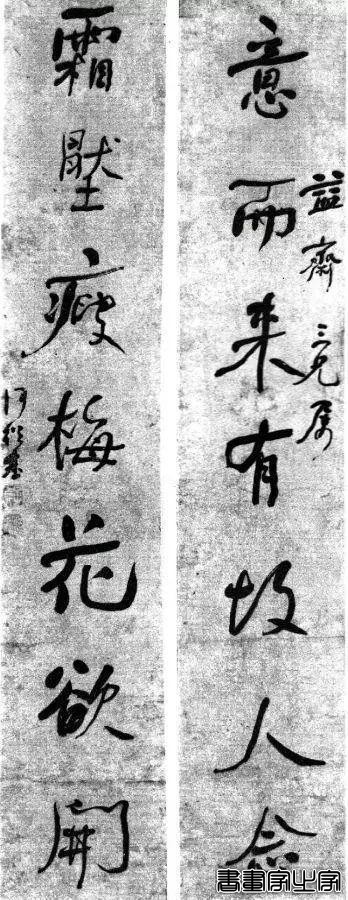 益齋三兄屬
意雨来有故人念
霜壓瘦梅花欲開
何紹基
書畫家之家